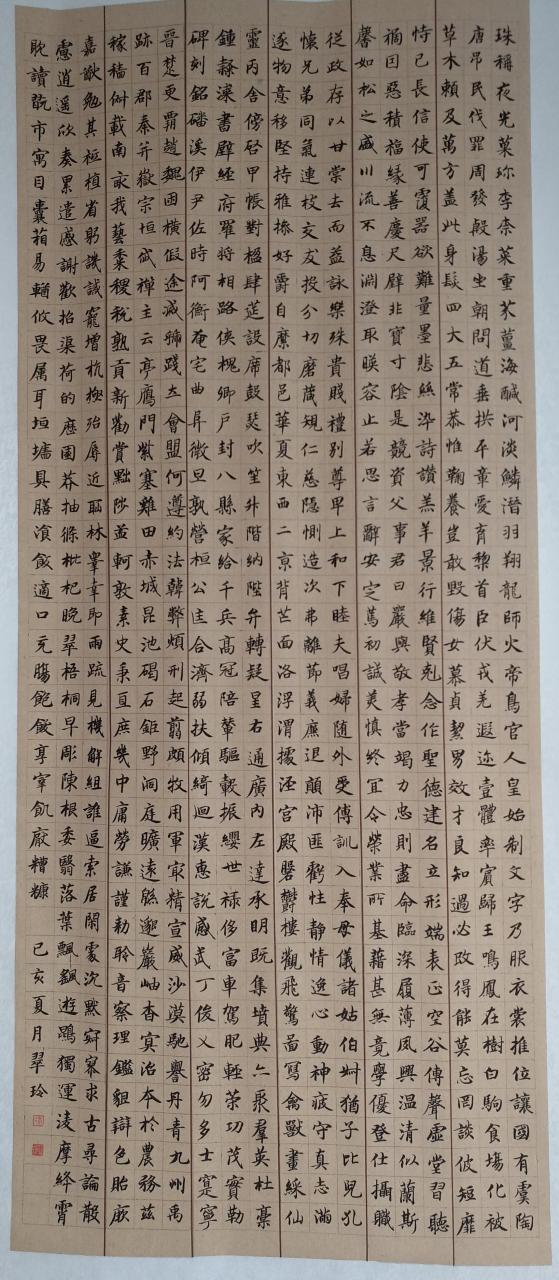 珠稱夜光菓珍李柰菜重芥薑海鹹河淡鱗潛羽翔龍師火帝鳥官人皇始制文字乃服衣裳推位讓國有虞陶
唐弔民伐罪周發殷湯坐朝問道垂拱平章愛育黎首臣伏戎羌遐迩壹體率賓歸王鳴鳳在樹白駒食場化被
草木賴及萬方蓋此身髮四大五常恭惟鞠養豈敢毀傷女慕貞絜男效才良知過必改得能莫忘罔談彼短靡
恃己長信使可覆器欲難量墨悲絲染詩讚羔羊景行維賢剋念作聖德建名立形端表正空谷傳聲虛堂習聽
禍因惡積福緣善慶尺璧非寶寸陰是競資父事君曰嚴與敬孝當竭力忠則盡命臨深履薄夙興溫清似蘭斯
馨如松之盛川流不息淵澄取暎容止若思言辭安定篤初誠美慎終宜令榮業所基藉甚無竟學優登仕攝職
從政存以甘棠去而益詠樂殊貴賤禮別尊卑上和下睦夫唱婦隨外受傅訓入奉母儀諸姑伯叔猶子比兒孔
懷兄弟同氣連枝交友投分切磨箴規仁慈隱惻造次弗離節義廉退顛沛匪虧性靜情逸心動神疲守真志滿
逐物意移堅持雅操好爵自縻都邑華夏東西二京背芒面洛浮渭據涇宮殿磐鬱樓觀飛驚圖寫禽獸畫綵仙
靈丙舍傍啟甲帳對楹肆筵設席鼓瑟吹笙升階納陛弁轉疑星右通廣內左達承明既集墳典亦聚群英杜稾
鍾隸漆書壁經府羅將相路俠槐卿戶封八縣家給千兵高冠陪輦驅轂振纓世祿侈富車駕肥輕策功茂實勒
碑刻銘磻溪伊尹佐時阿衡奄宅曲阜微旦孰營桓公匡合濟弱扶傾綺迴漢惠說感武丁俊乂密勿多士寔寧
晉楚更霸趙魏困橫假途滅虢踐土會盟何遵約法韓弊煩刑起翦頗牧用軍最精宣威沙漠馳譽丹青九州禹
跡百郡秦并嶽宗恒岱禪主云亭鴈門紫塞雞田赤城昆池碣石鉅野洞庭曠遠緜邈巖岫杳冥治本於農務茲
稼穡俶載南畝我藝黍稷稅熟貢新勸賞黜陟孟軻敦素史秉直庶幾中庸勞謙謹勑聆音察理鑑貌辯色貽厥
嘉猷勉其祗植省躬譏誡寵增抗極殆辱近恥林皋幸即兩疏見機解組誰逼索居閑處沉默寂寥求古尋論散
慮逍遙欣奏累遣慼謝歡招渠荷的歷園莽抽條枇杷晚翠梧桐早彫陳根委翳落葉飄颻遊鵾獨運凌摩絳霄
耽讀翫市寓目囊箱易輶攸畏属耳垣墻具膳飡飯適口充腸飽飫享宰飢厭糟糠 己亥夏月翠玲